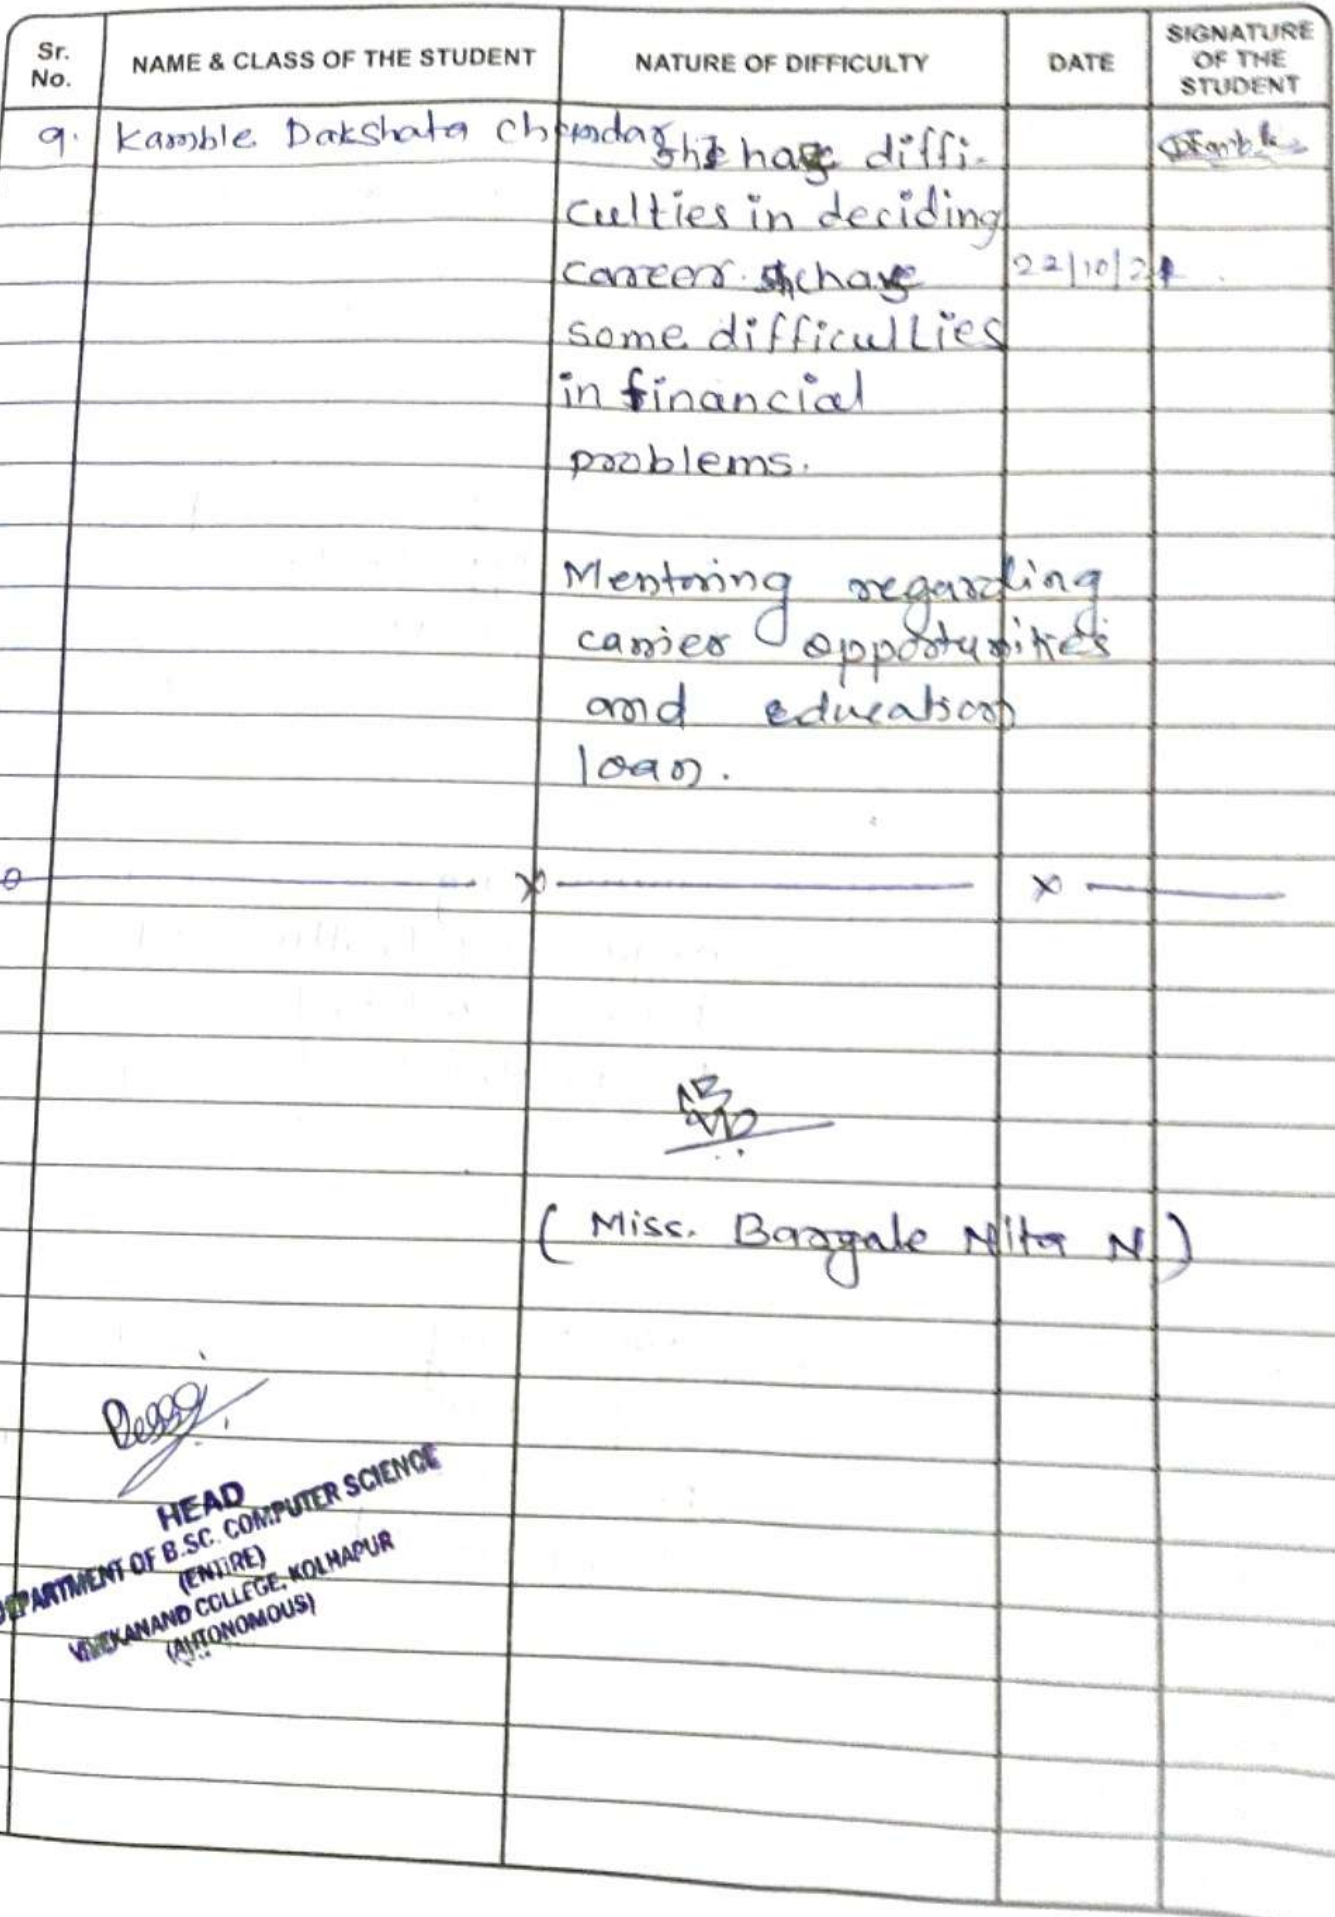 Sr. No.
NAME & CLASS OF THE STUDENT
NATURE OF DIFFICULTY
DATE
SIGNATURE OF THE STUDENT
9. Kamble Dakshata Chandar
She have diffi-
culties in deciding
career. She have 22/10/21
some difficulties
in financial
problems.
Mentoring regarding
carrier opportunities
and education
loan.
(Miss. Bargale Nita N)
HEAD
DEPARTMENT OF B.SC. COMPUTER SCIENCE
(ENTIRE)
VIVEKANAND COLLEGE, KOLHAPUR
(AUTONOMOUS)